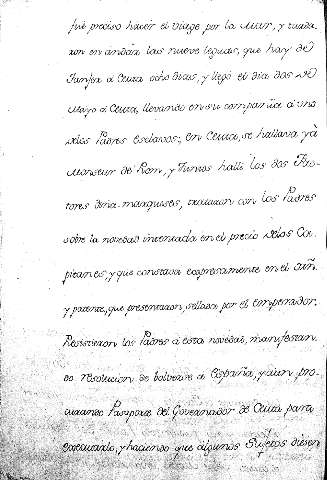 fué preciso hacer el viage por la mar, y tarda-
ron en andar las nueve leguas, que hay de
Tanjer a Ceuta ocho dias, y llegó el dia dos de
Mayo a Ceuta, llevando en su compañia á uno
delos Padres esclavos; en Ceuta, se hallava yà
Monseur de Rom, y Juntos halli los dos
tores trataron con los Padres
sobre la novedad intentada en el precio delos Ca-
pitanes, y que constava expresamente en el
y patente, que presentaron, sellada por el emperador.
Resistieron los Padres á esta novedad, manifestan-
do resolucion de bolverse a España, y aun pro-
curando Pasaporte del Governador de Ceuta para
executarlo, y haciendo que algunos Sujetos diesen